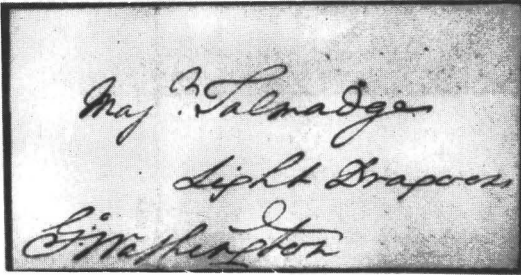 Majr. Talmadge
Light Dragoons
Go: Washington